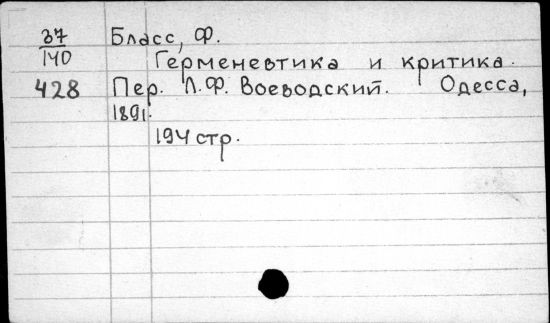 37 Бласс, Ф.
140 Герменевтика и критика.
428 Пер. Л.Ф. Воеводский. Одесса,
1891.
194 стр.